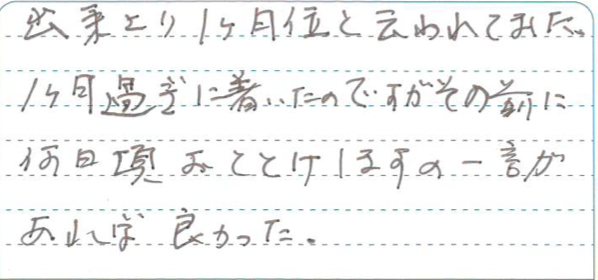 出来上り1ヶ月位と云われてました。
1ヶ月過ぎに着いたのですがその前に
何日頃おととけしますの一言が
あれば良かった。